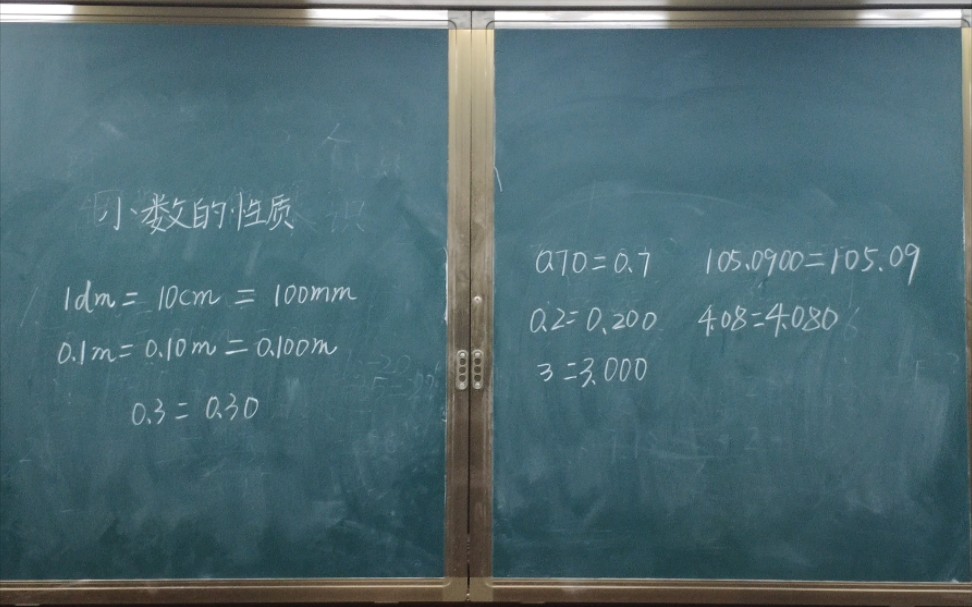 小数的性质
1dm = 10cm = 100mm
0.1m = 0.10m = 0.100m
0.3 = 0.30
0.70 = 0.7 105.0900 = 105.09
0.2 = 0.200 4.08 = 4.080
3 = 3.000